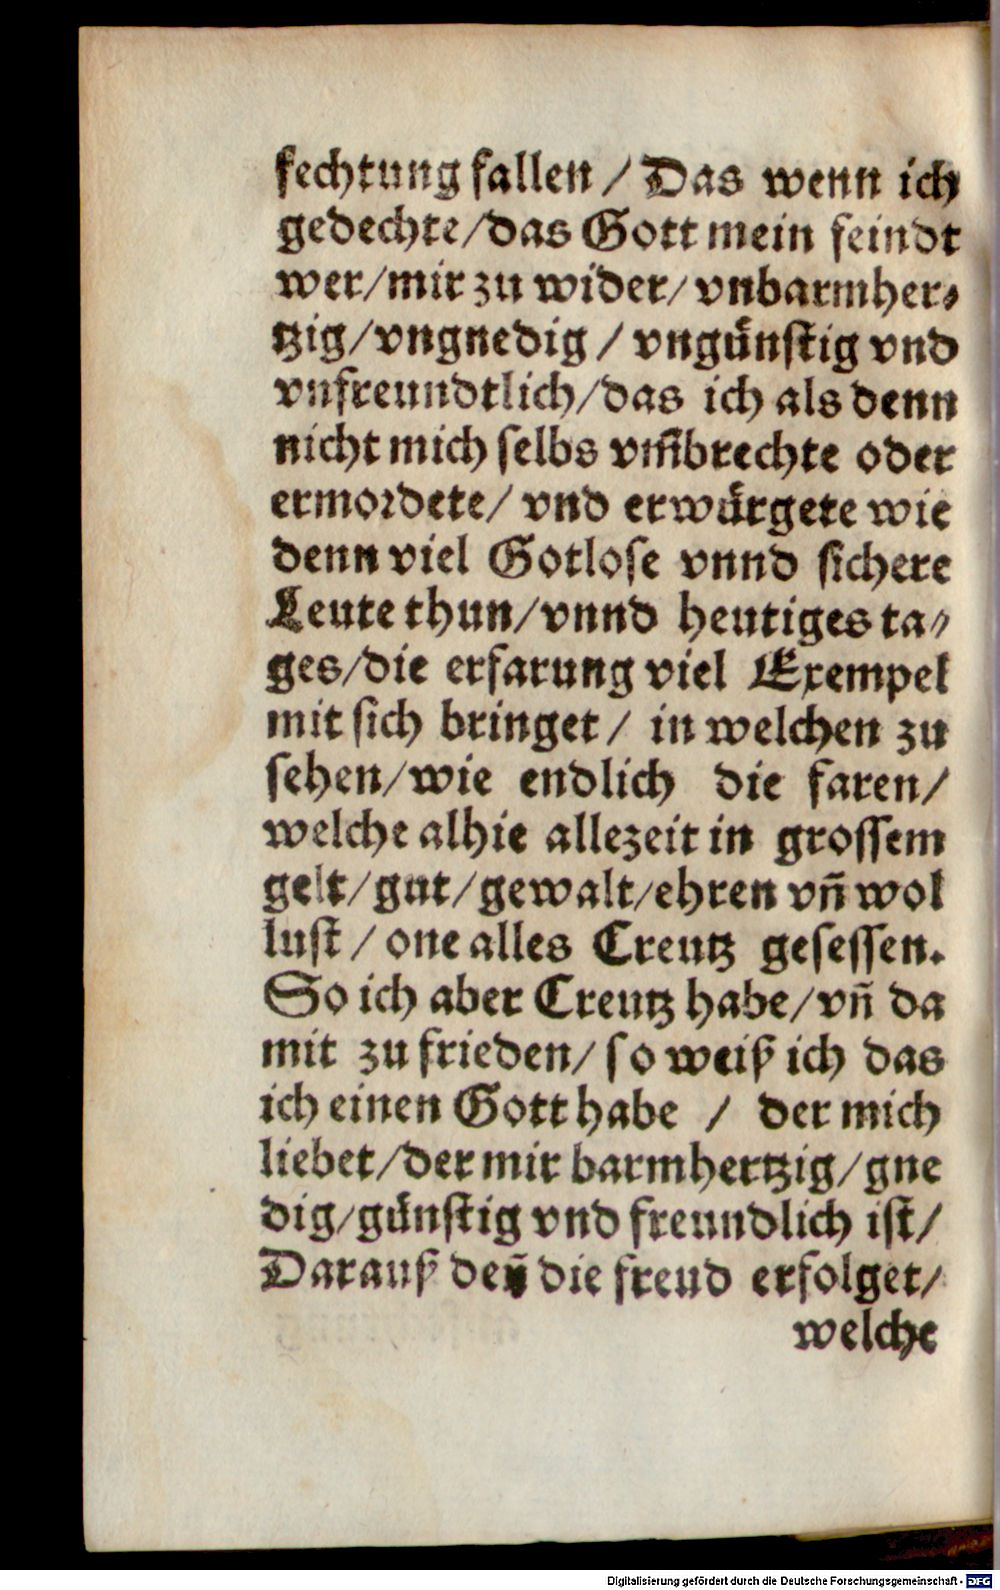 fechtung fallen / Das wenn ich
gedechte/das Gott mein feindt
wer/mir zu wider/ vnbarmher⸗
tzig/vngnedig / vngünstig vnd
vnfreundtlich/das ich als denn
nicht mich selbs vm̃brechte oder
ermordete/ vnd erwürgete wie
denn viel Gotlose vnnd sichere
Leute thun/vnnd heutiges ta⸗
ges/die erfarung viel Exempel
mit sich bringet / in welchen zu
sehen/wie endlich die faren/
welche alhie allezeit in grossem
gelt/gut/gewalt/ehren vn̄ wol
lust / one alles Creutz gesessen.
So ich aber Creutz habe/vn̄ da
mit zu frieden/ so weiß ich das
ich einen Gott habe / der mich
liebet/der mir barmhertzig/gne
dig/günstig vnd freundlich ist/
Darauß den̄ die freud erfolget/
welche
Digitalisierung gefördert durch die Deutsche Forschungsgemeinschaft - DFG